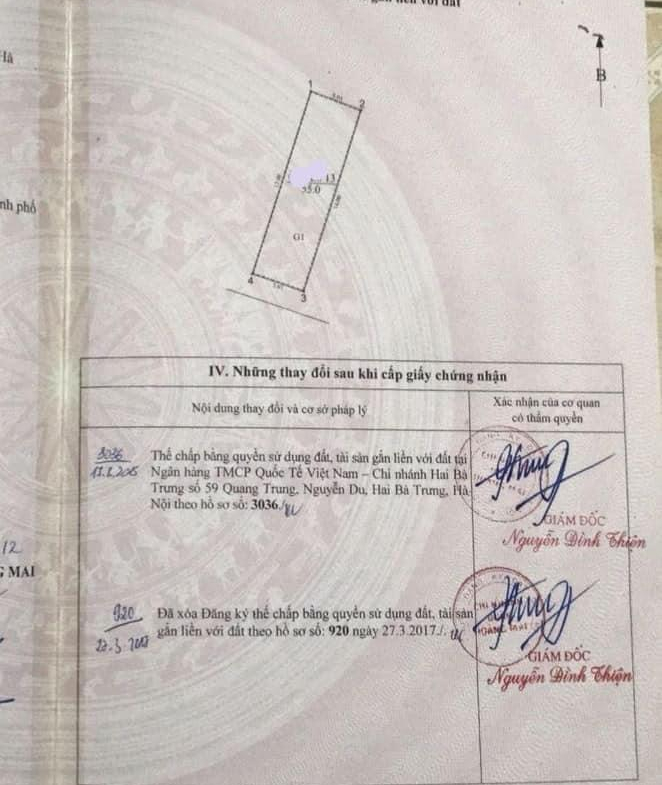 gắn liền với đất
Hà
B
1
2
13
55.0
G1
4
3
nh phố
IV. Những thay đổi sau khi cấp giấy chứng nhận
Nội dung thay đổi và cơ sở pháp lý
Xác nhận của cơ quan
có thẩm quyền
3036
Thế chấp bằng quyền sử dụng đất, tài sản gắn liền với đất tại
Ngân hàng TMCP Quốc Tế Việt Nam – Chi nhánh Hai Bà
Trưng số 59 Quang Trung, Nguyễn Du, Hai Bà Trưng, Hà
Nội theo hồ sơ số: 3036./
GIÁM ĐỐC
Nguyễn Đình Thiện
12
G MAI
920
27.3.2017
Đã xóa Đăng ký thế chấp bằng quyền sử dụng đất, tài sản
gắn liền với đất theo hồ sơ số: 920 ngày 27.3.2017./.
GIÁM ĐỐC
Nguyễn Đình Thiện